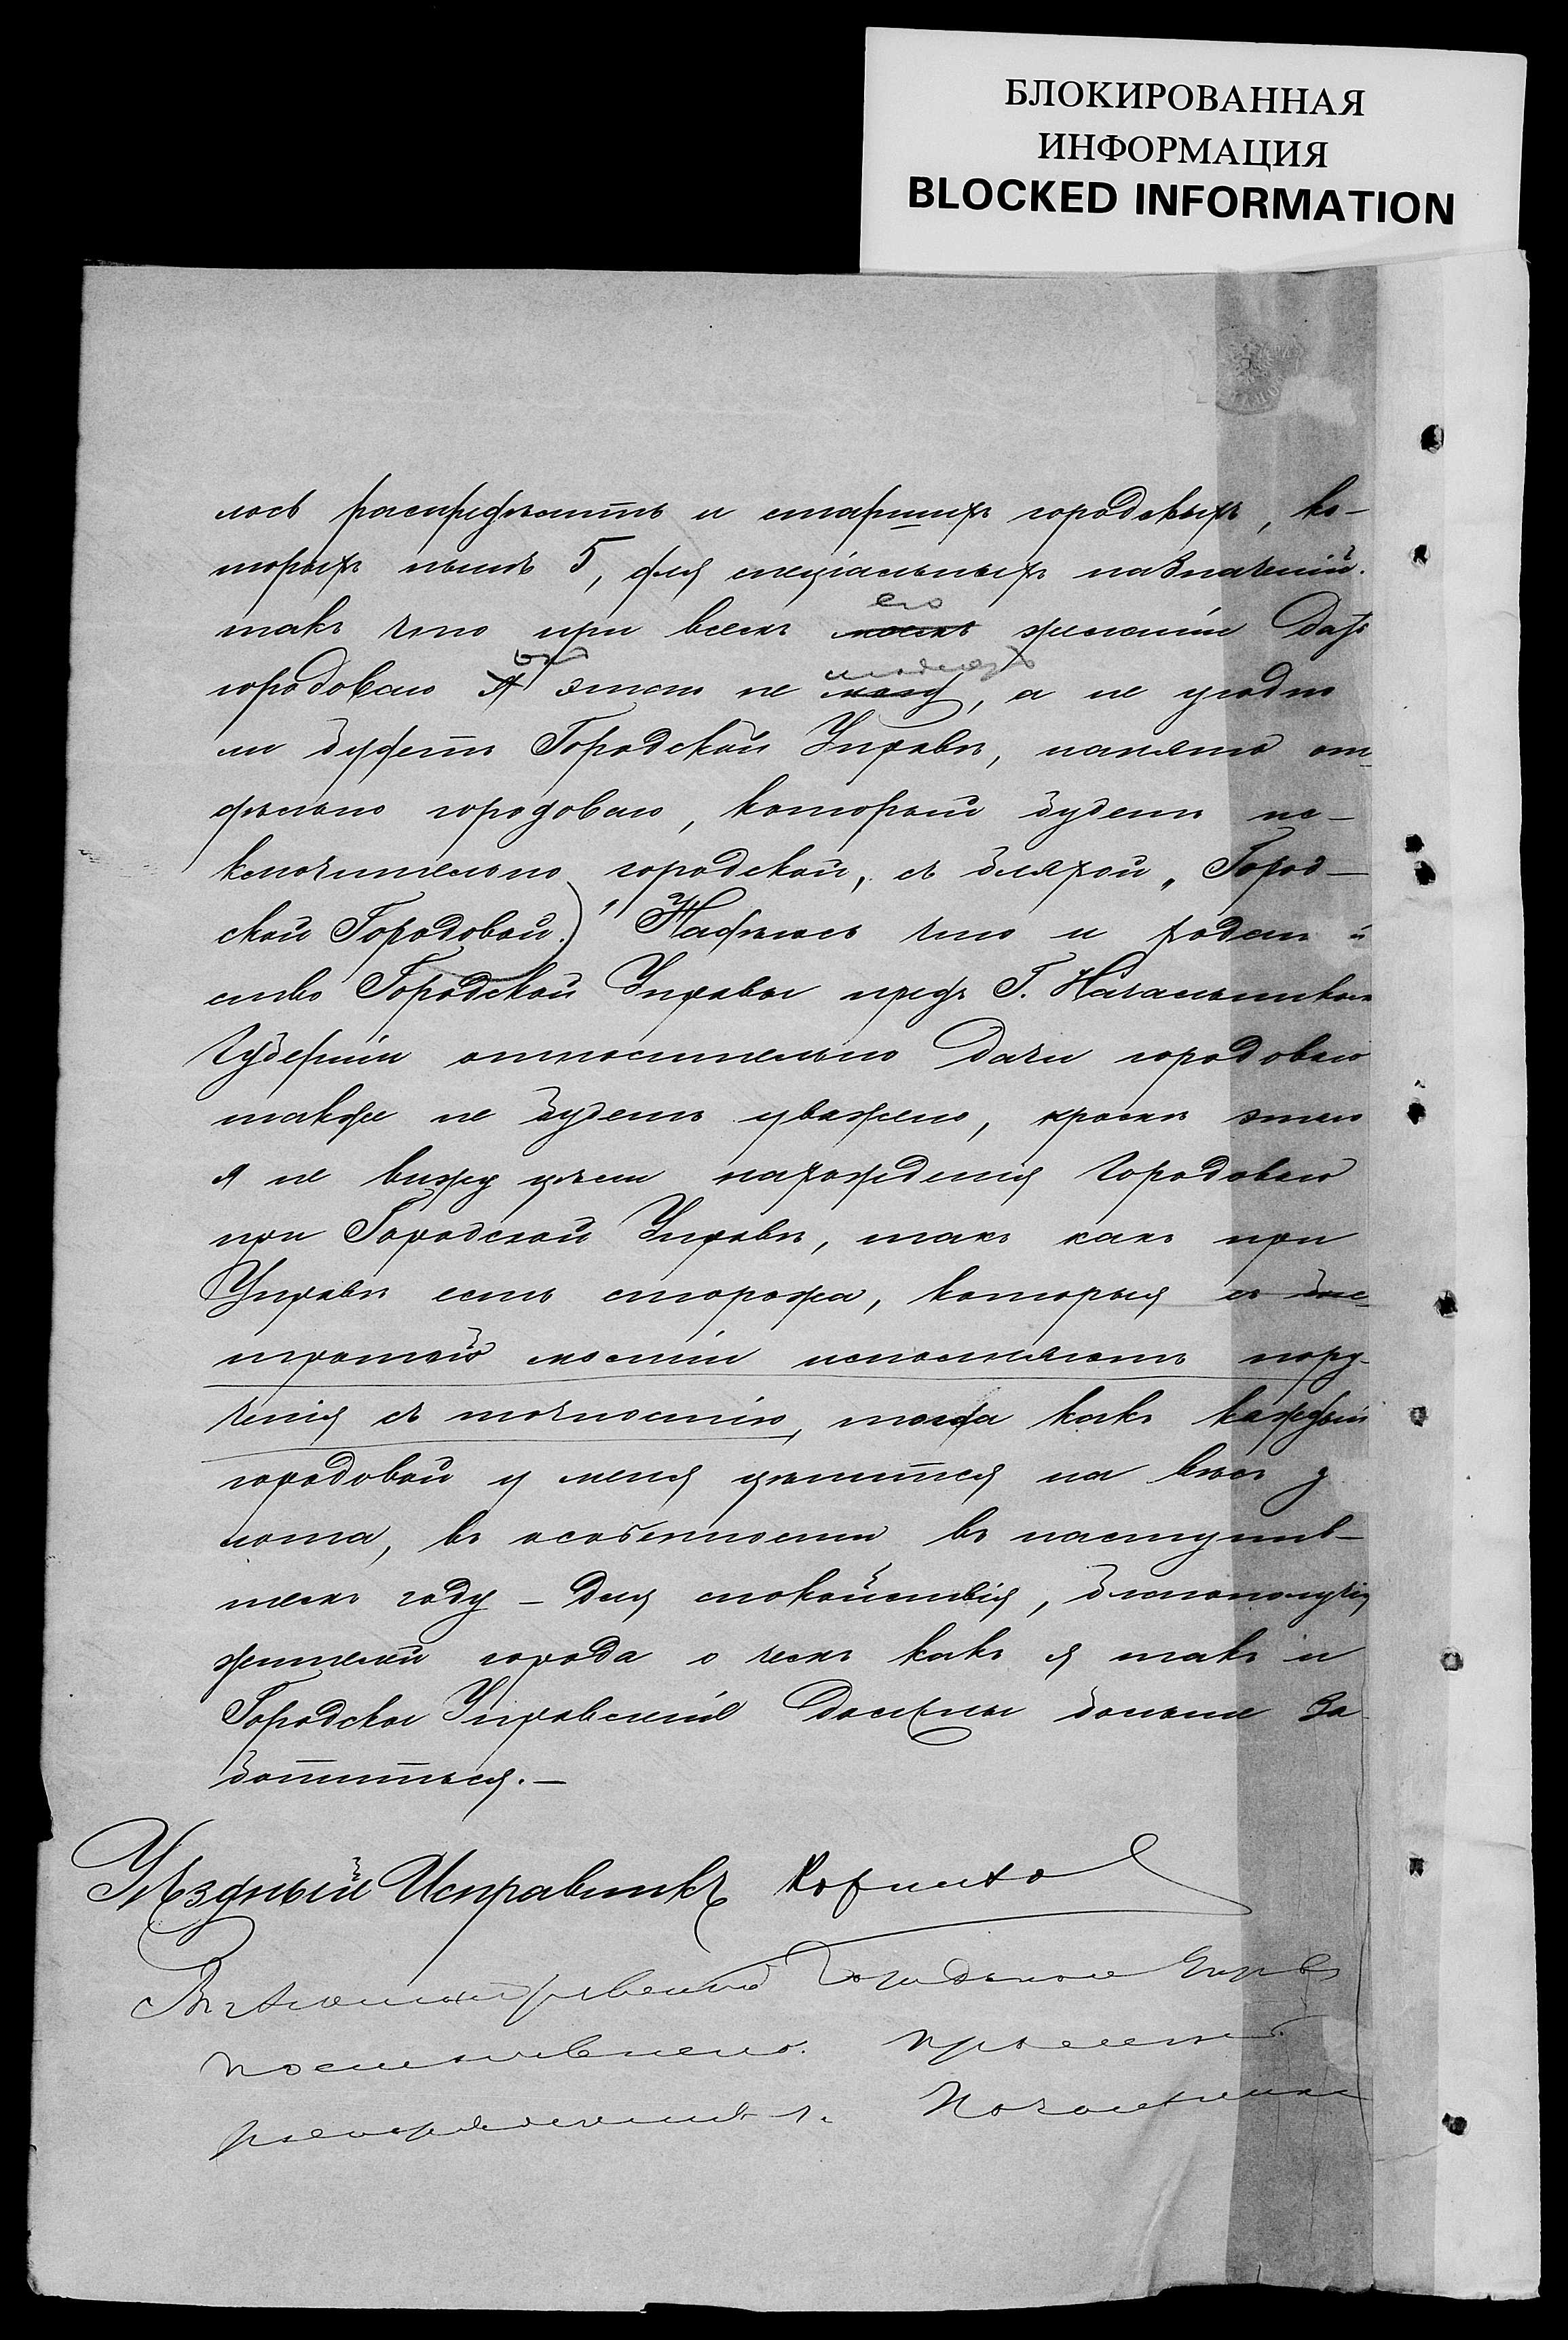 БЛОКИРОВАННАЯ
ИНФОРМАЦИЯ
BLOCKED INFORMATION
лось распредѣлить и старшихъ городскихъ, ко-
торыхъ нынѣ 5, для спеціальныхъ назначеній.
его
такъ что при всемъ моемъ желаніи дать
онъ можетъ
городоваго Я этого не могу, а не угодно
ли будетъ Городской Управѣ, нанять от-
дѣльно городоваго, который будетъ ис-
ключительно городской, съ бляхой „Город-
ской Городовой". Надѣюсь что и ходатай
ство Городской Управы предъ Г. Начальникомъ
Губерніи относительно дачи городоваго
также не будетъ уважено, кромѣ этого
я не вижу цѣли нахожденія Городоваго
при Городской Управѣ, такъ какъ при
Управѣ есть сторожа, которыя съ бы-
стротой молніи исполняютъ пору-
ченія съ точностію, тогда какъ каждый
городовой у меня цѣнится на вѣсъ з
лота, въ особенности въ наступив-
шемъ году – для спокойствія, благополучія
жителей города о чемъ какъ я такъ и
Городское Управленіе должны больше за
ботиться. –
Уѣздный Исправникъ
Въ Городской Управѣ
постановлено: